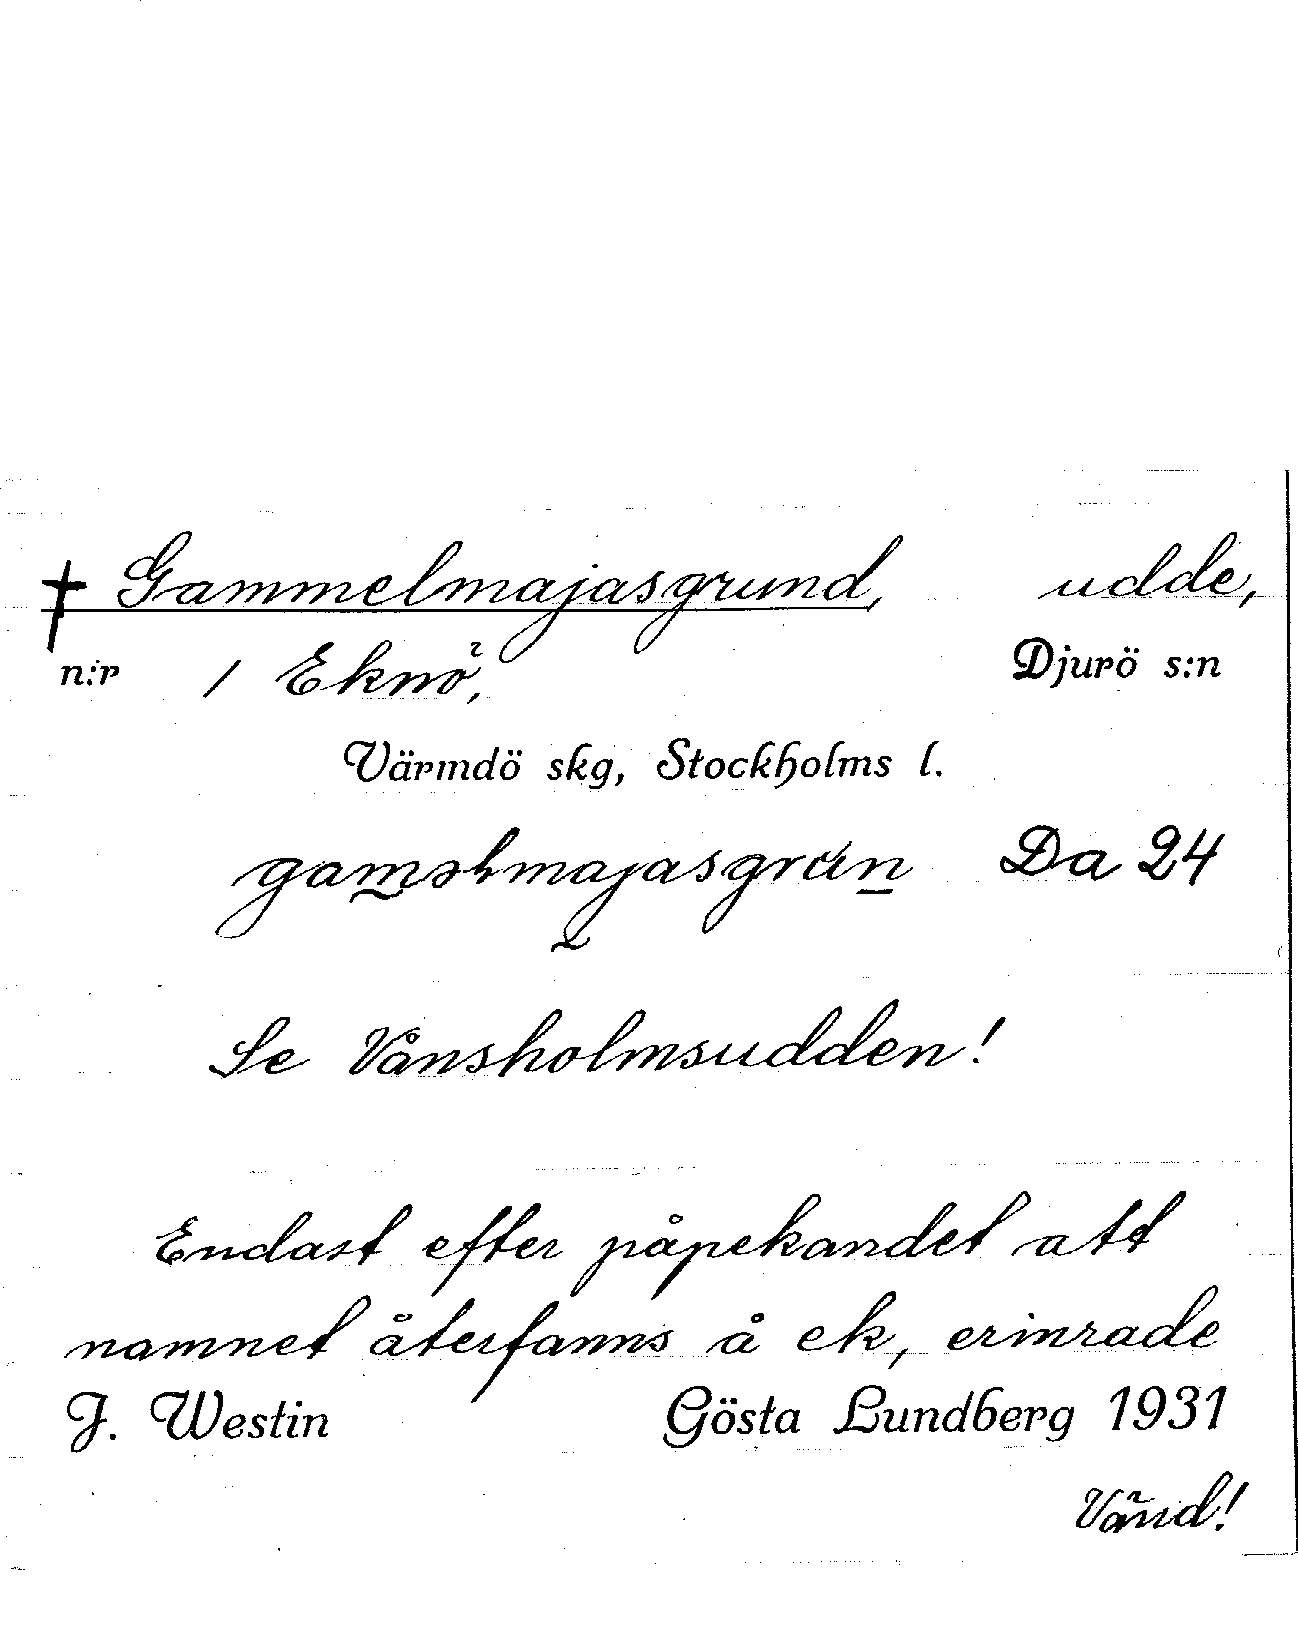 † Gammelmajasgrund, udde,
n:r / Eknö, Djurö s:n
Värmdö skg, Stockholms l.
gaməlmajasgrun Da 24
Se Vånsholmsudden!
Endast efter påpekandet att
namnet återfanns å ek, erinrade
J. Westin Gösta Lundberg 1931
Vänd!